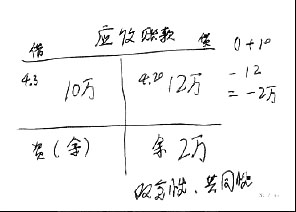 应收账款
借 贷
4.3 10万 4.20 12万
0+10
-12
=-2万
贷(余) 余 2万
双重性、共同性